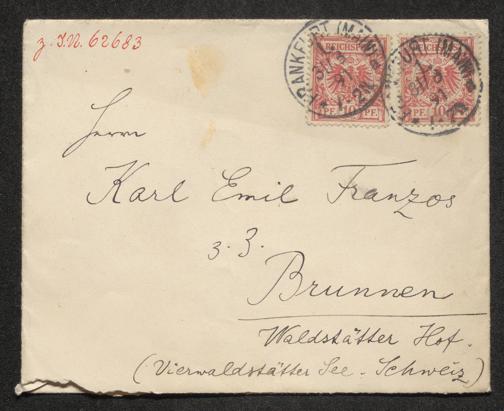 z. I.N. 62683
FRANKFURT (MAIN)
REICHSPOST
PF. 10 PF.
FURT (MAIN)
REICHSPOST
PF. 10
Herrn
Karl Emil Franzos
z. Z.
Brunnen
Waldstätter Hof.
(Vierwaldstätter See - Schweiz)